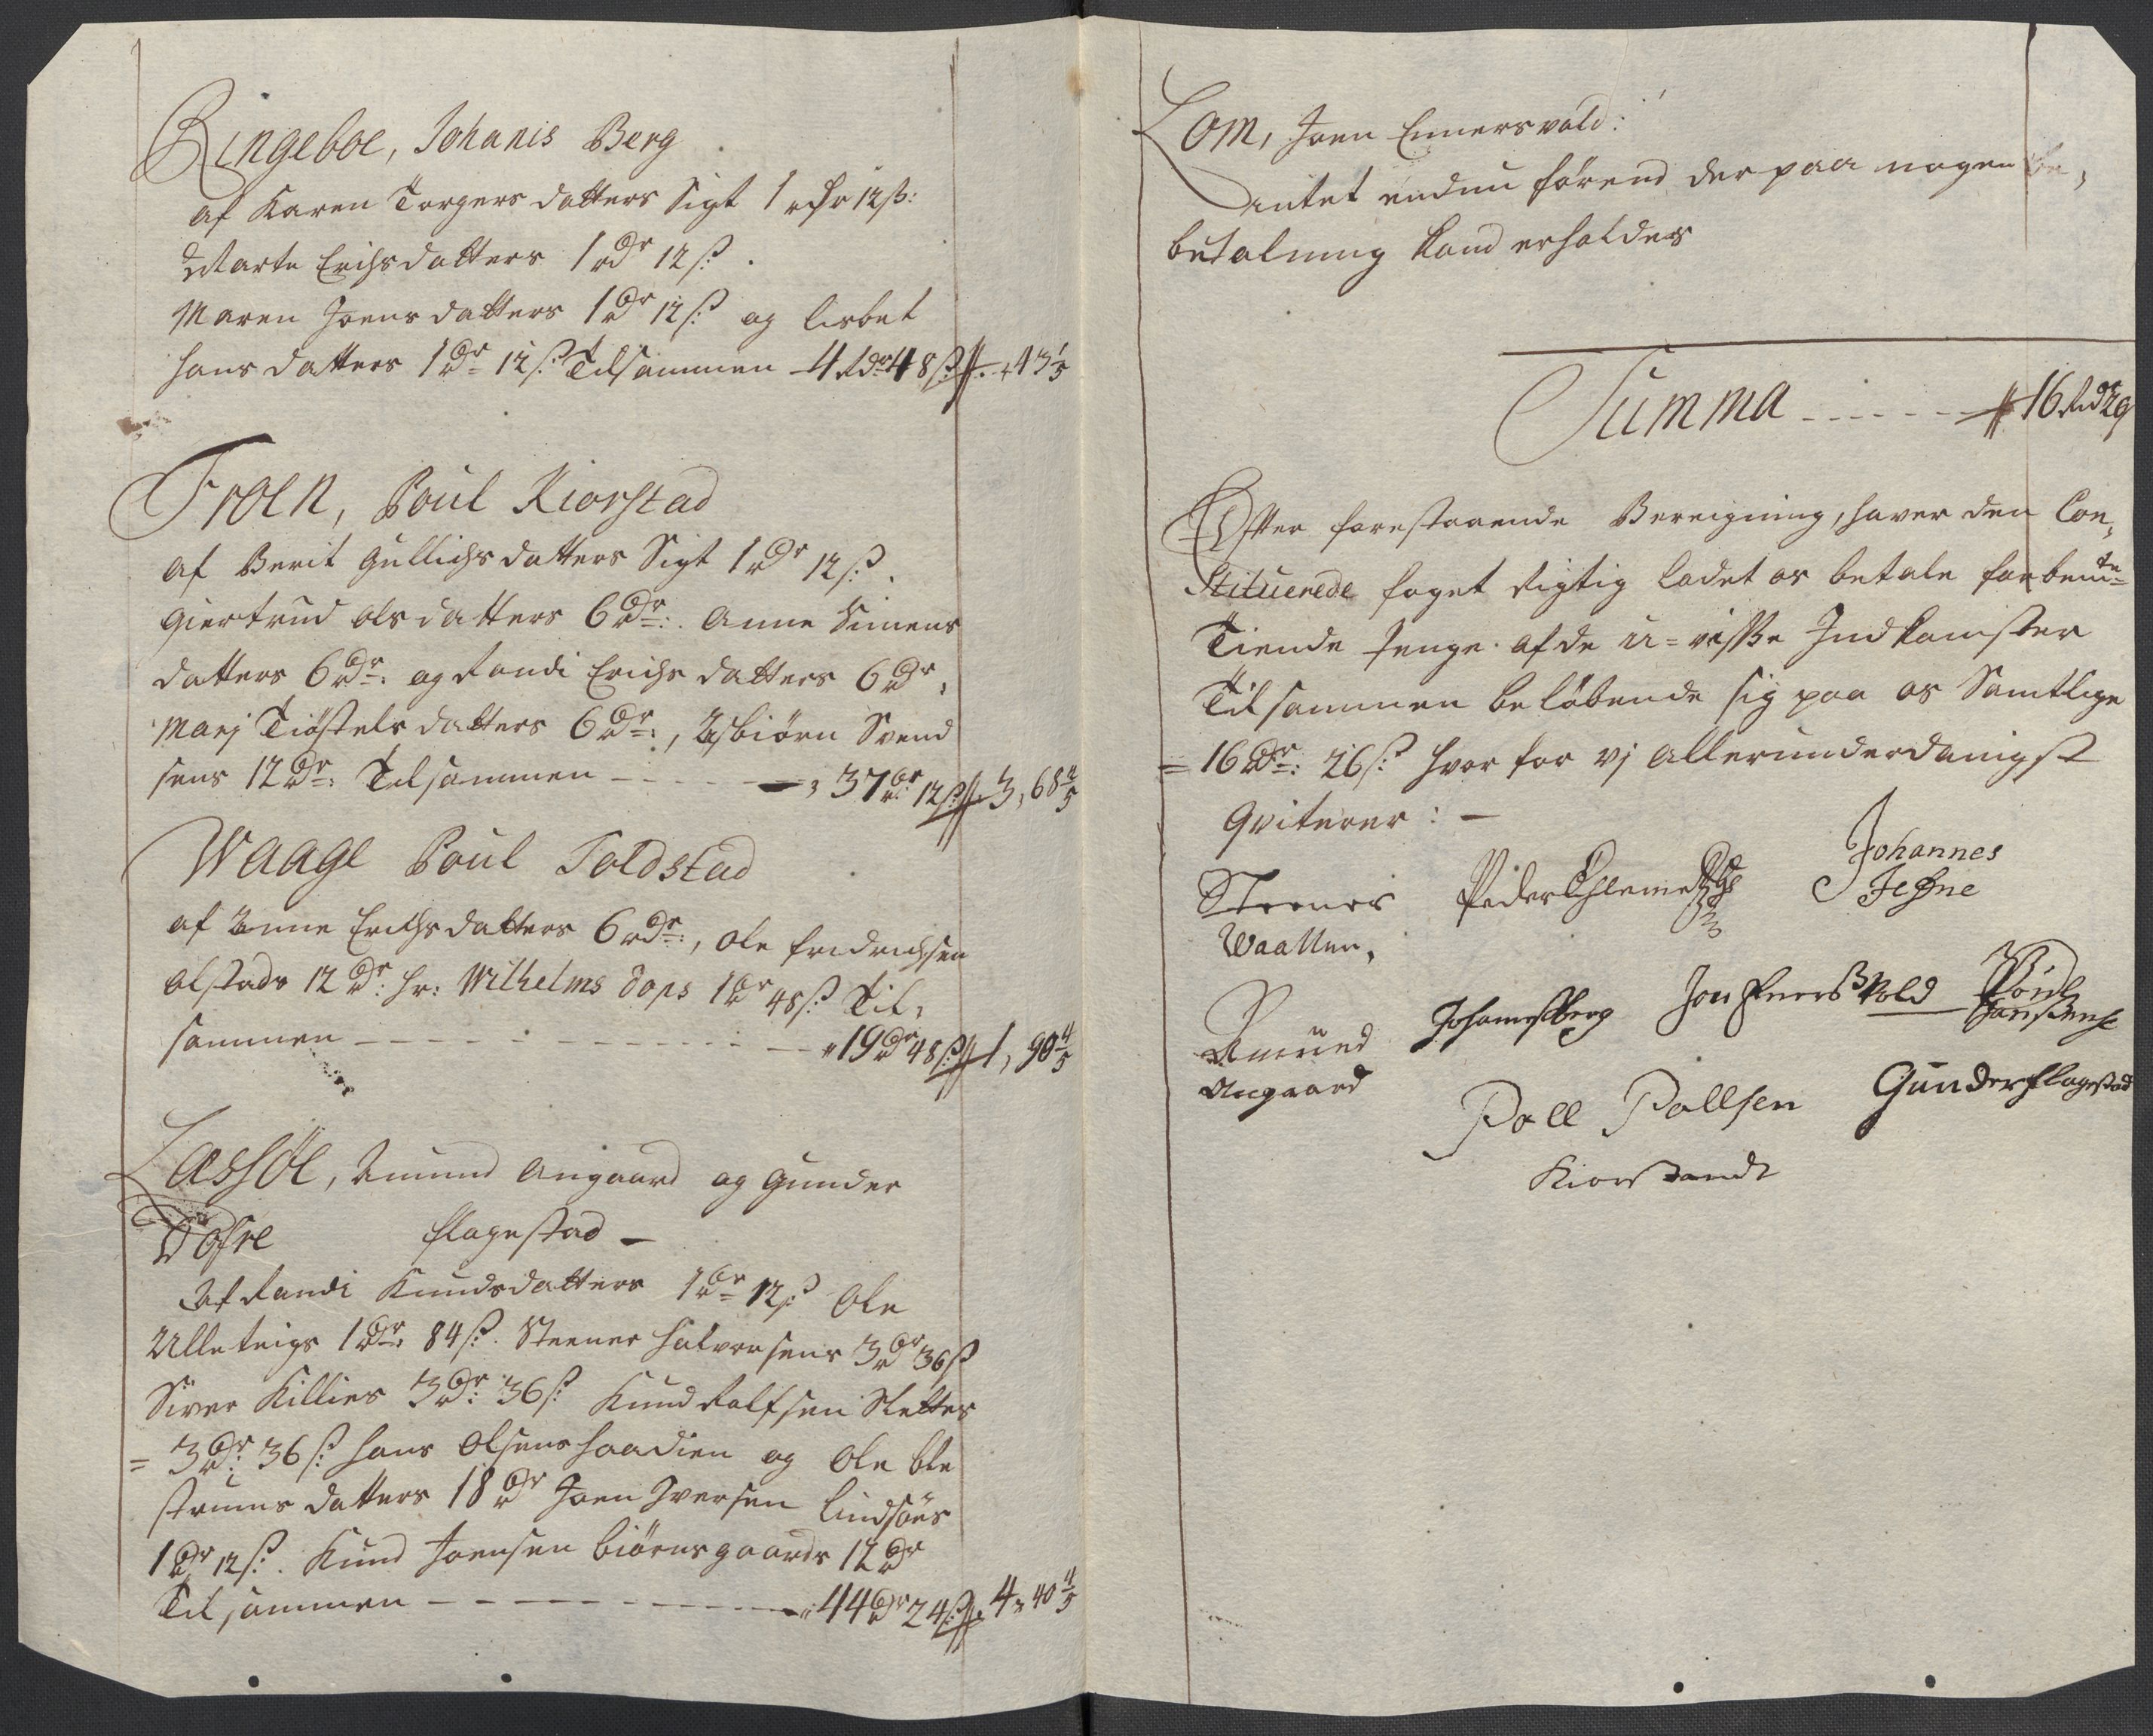 Ringeboe, Johanis Berg
af Karen Torgersdatters Sigt 1 rdr 12 ß:
Marte Erichsdatters 1 rdr 12 ß.
Maren Joensdatters 1 rdr 12 ß: og Lisbet
Hansdatters 1 rdr 12 ß: Tilsammen 4 rdr 48 ß: 43 1/5
Froen, Poul Kiorstad
af Berit Gullichsdatters Sigt 1 rdr 12 ß:
Giertrud Olsdatters 6 rdr: Anne Simens
datters 6 rdr: og Randi Erichsdatters 6 rdr,
Marj Tiøstelsdatters 6 rdr:, Asbiørn Svend
sens 12 rdr: Tilsammen - - - - 37 rdr 12 ß: 3, 68 4/5
Waage Poul Toldstad
af Anne Erichsdatters 6 rdr:, Ole Fridrichsen
Olstads 12 rdr: Hr: Wilhelms 1 rdr 48 ß Til,
sammen - - - - - - 19 rdr 48 ß: 1, 90 4/5
Lessøe, Amund Angaard og Gunder
Dofre Flagestad -
Af Randi Knudsdatters 1 rdr 12 ß Ole
Ulleteigs 1 rdr: 84 ß. Steener Halvorsens 3 rdr 36 ß
Siver Killies 3 rdr: 36 ß: Knud Rolfsen Sletter
= 3 rdr: 36 ß: Hans Olsens Haadien og Ole
datters 18 rdr Joen Iversen Lindsøes
1 rdr 12 ß: Knud Joensen Biørnsgaards 12 rdr
Tilsammen - - - - - - 44 rdr 24 ß: 4, 40 4/5
Lom, Joen Ennersvold:
intet endnu førend der paa nogen
betalning kand erholdes
Summa - - - - - 16 Rdr 29
Efter forestaaende Beregning, haver den Con,
stituerede foget rigtig ladet os betale forbemte=
Tiende penge af de u=visse Indkomster
Tilsammen beløbende sig paa os Samtlige
= 16 rdr: 26 ß: hvor for vj allerunderdanigst
Qviterer: -
Steener Peder Johannes
Waallen, Jehsne
Amund Johanes Berg Jon Enersvold Povl
Angaard
Poell Pollsen Gunder Flagestad
Kiorstandt